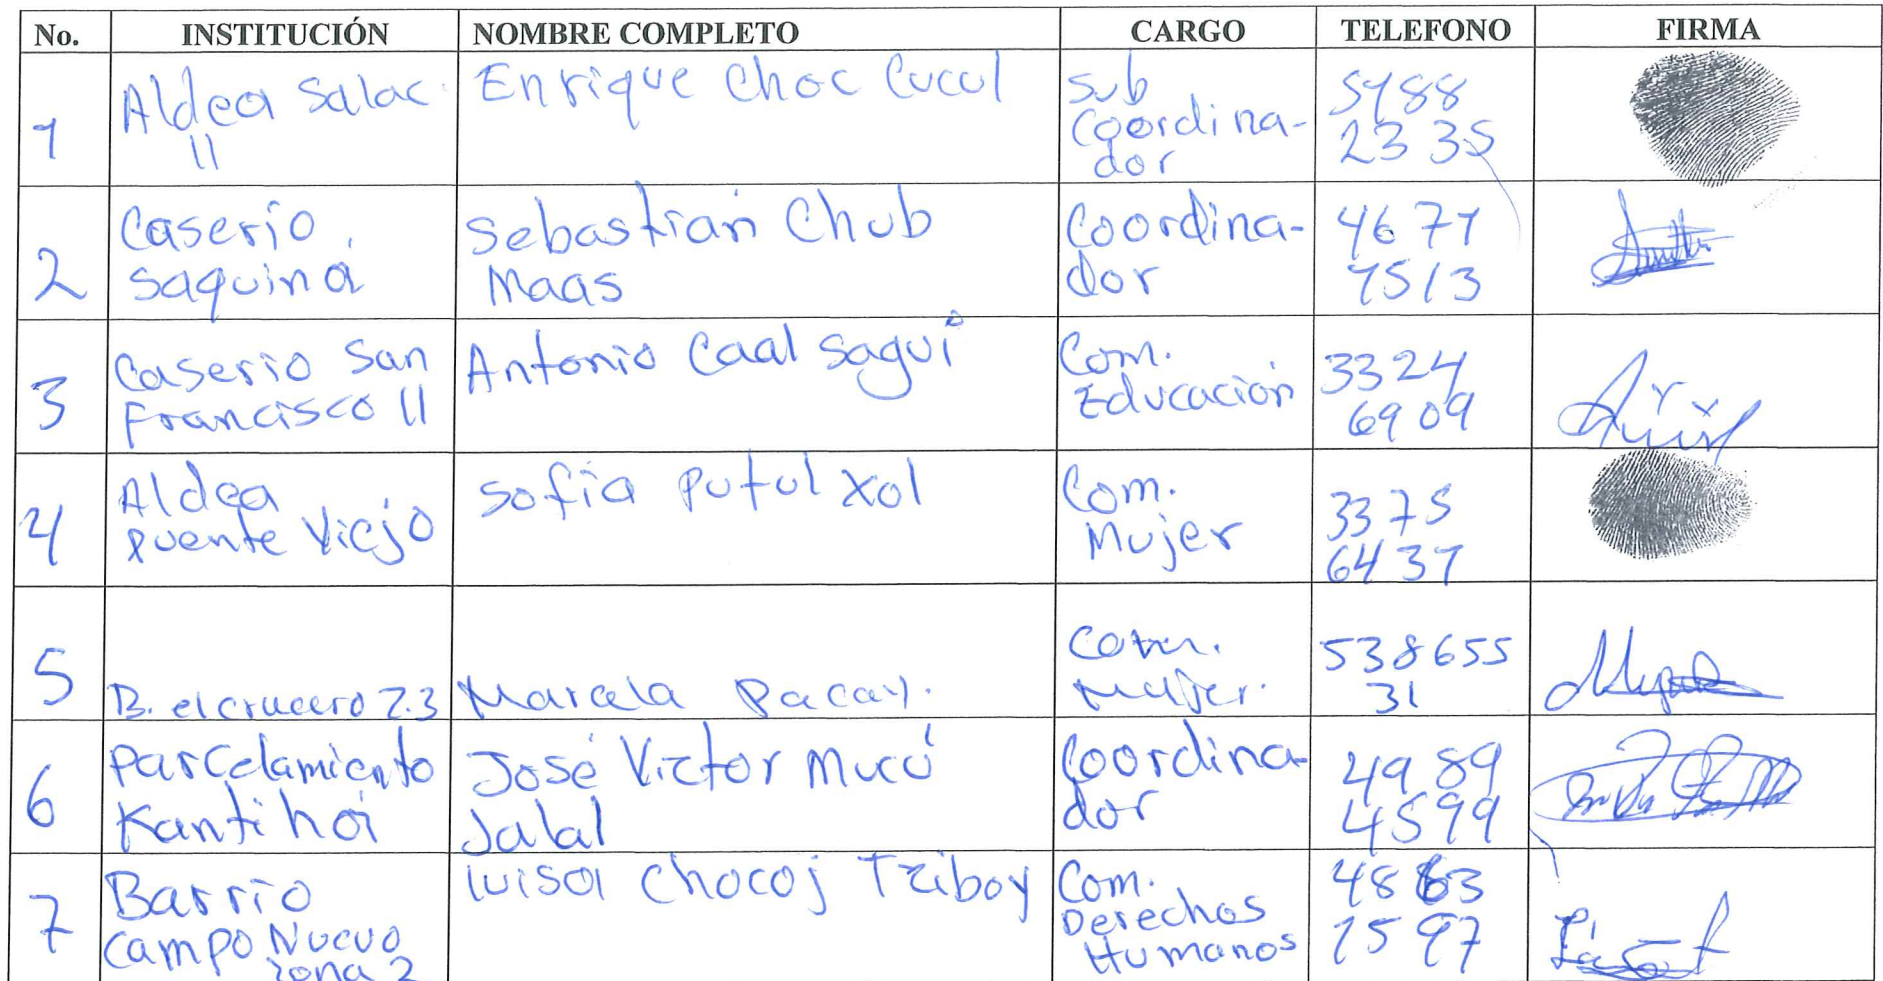 No. INSTITUCIÓN NOMBRE COMPLETO CARGO TELEFONO FIRMA
1 Aldea Salac II Enrique Choc Cucul Sub Coordina-dor 5188 2335
2 Caserío Saquiná Sebastian Chub Maas Coordina-dor 4671 1513
3 Caserio San Francisco II Antonio Caal Saguí Com. Educación 3324 6909
4 Aldea Puente Viejo Sofia Putul Xol Com. Mujer 3375 6437
5 B. el crucero Z.3 Marcela Pacay. Com. Mujer. 538655 31
6 Parcelamiento Kantihá José Victor Mucú Jalal Coordina-dor 4989 4599
7 Barrio Campo Nuevo zona 2 luisa Chocoj Tziboy Com. Derechos Humanos 4863 1597